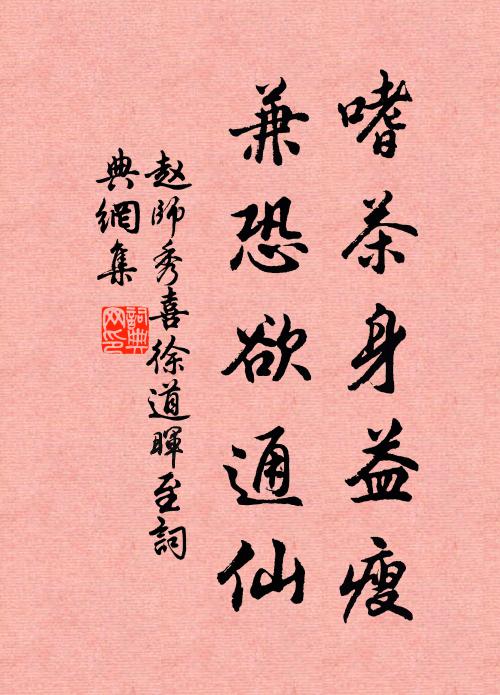 嗜茶身益瘦
兼恐欲通仙
赵師秀喜徐道暉至詞
典網集
詞典
网印